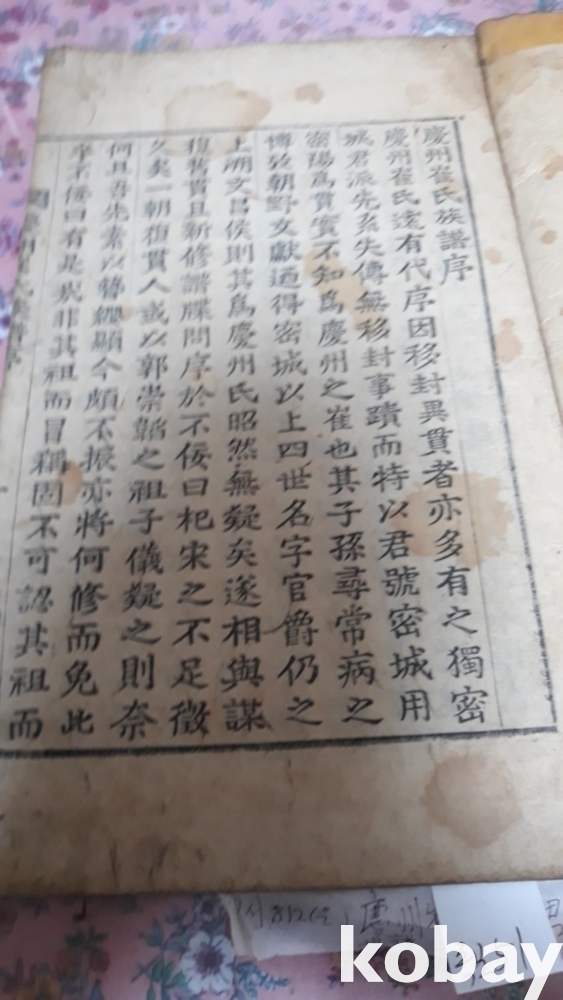 慶州崔氏族譜序
慶州崔氏遠有代序因移封異貫者亦多有之獨密
城君派先系失傳無移封事蹟而特以君號密城用
密陽爲貫實不知爲慶州之崔也其子孫尋常病之
博攷朝野文獻適得密城以上四世名字官爵仍之
上溯文昌侯則其爲慶州氏昭然無疑矣遂相與謀
復舊貫且新修譜牒問序於不佞曰杞宋之不足徵
久矣一朝復貫人或以郭崇韜之祖子儀疑之則奈
何且吾先素以簪纓顯今頗不振亦將何修而免此
不佞曰有是哉非其祖而冒稱固不可認其祖而
慶州
kobay